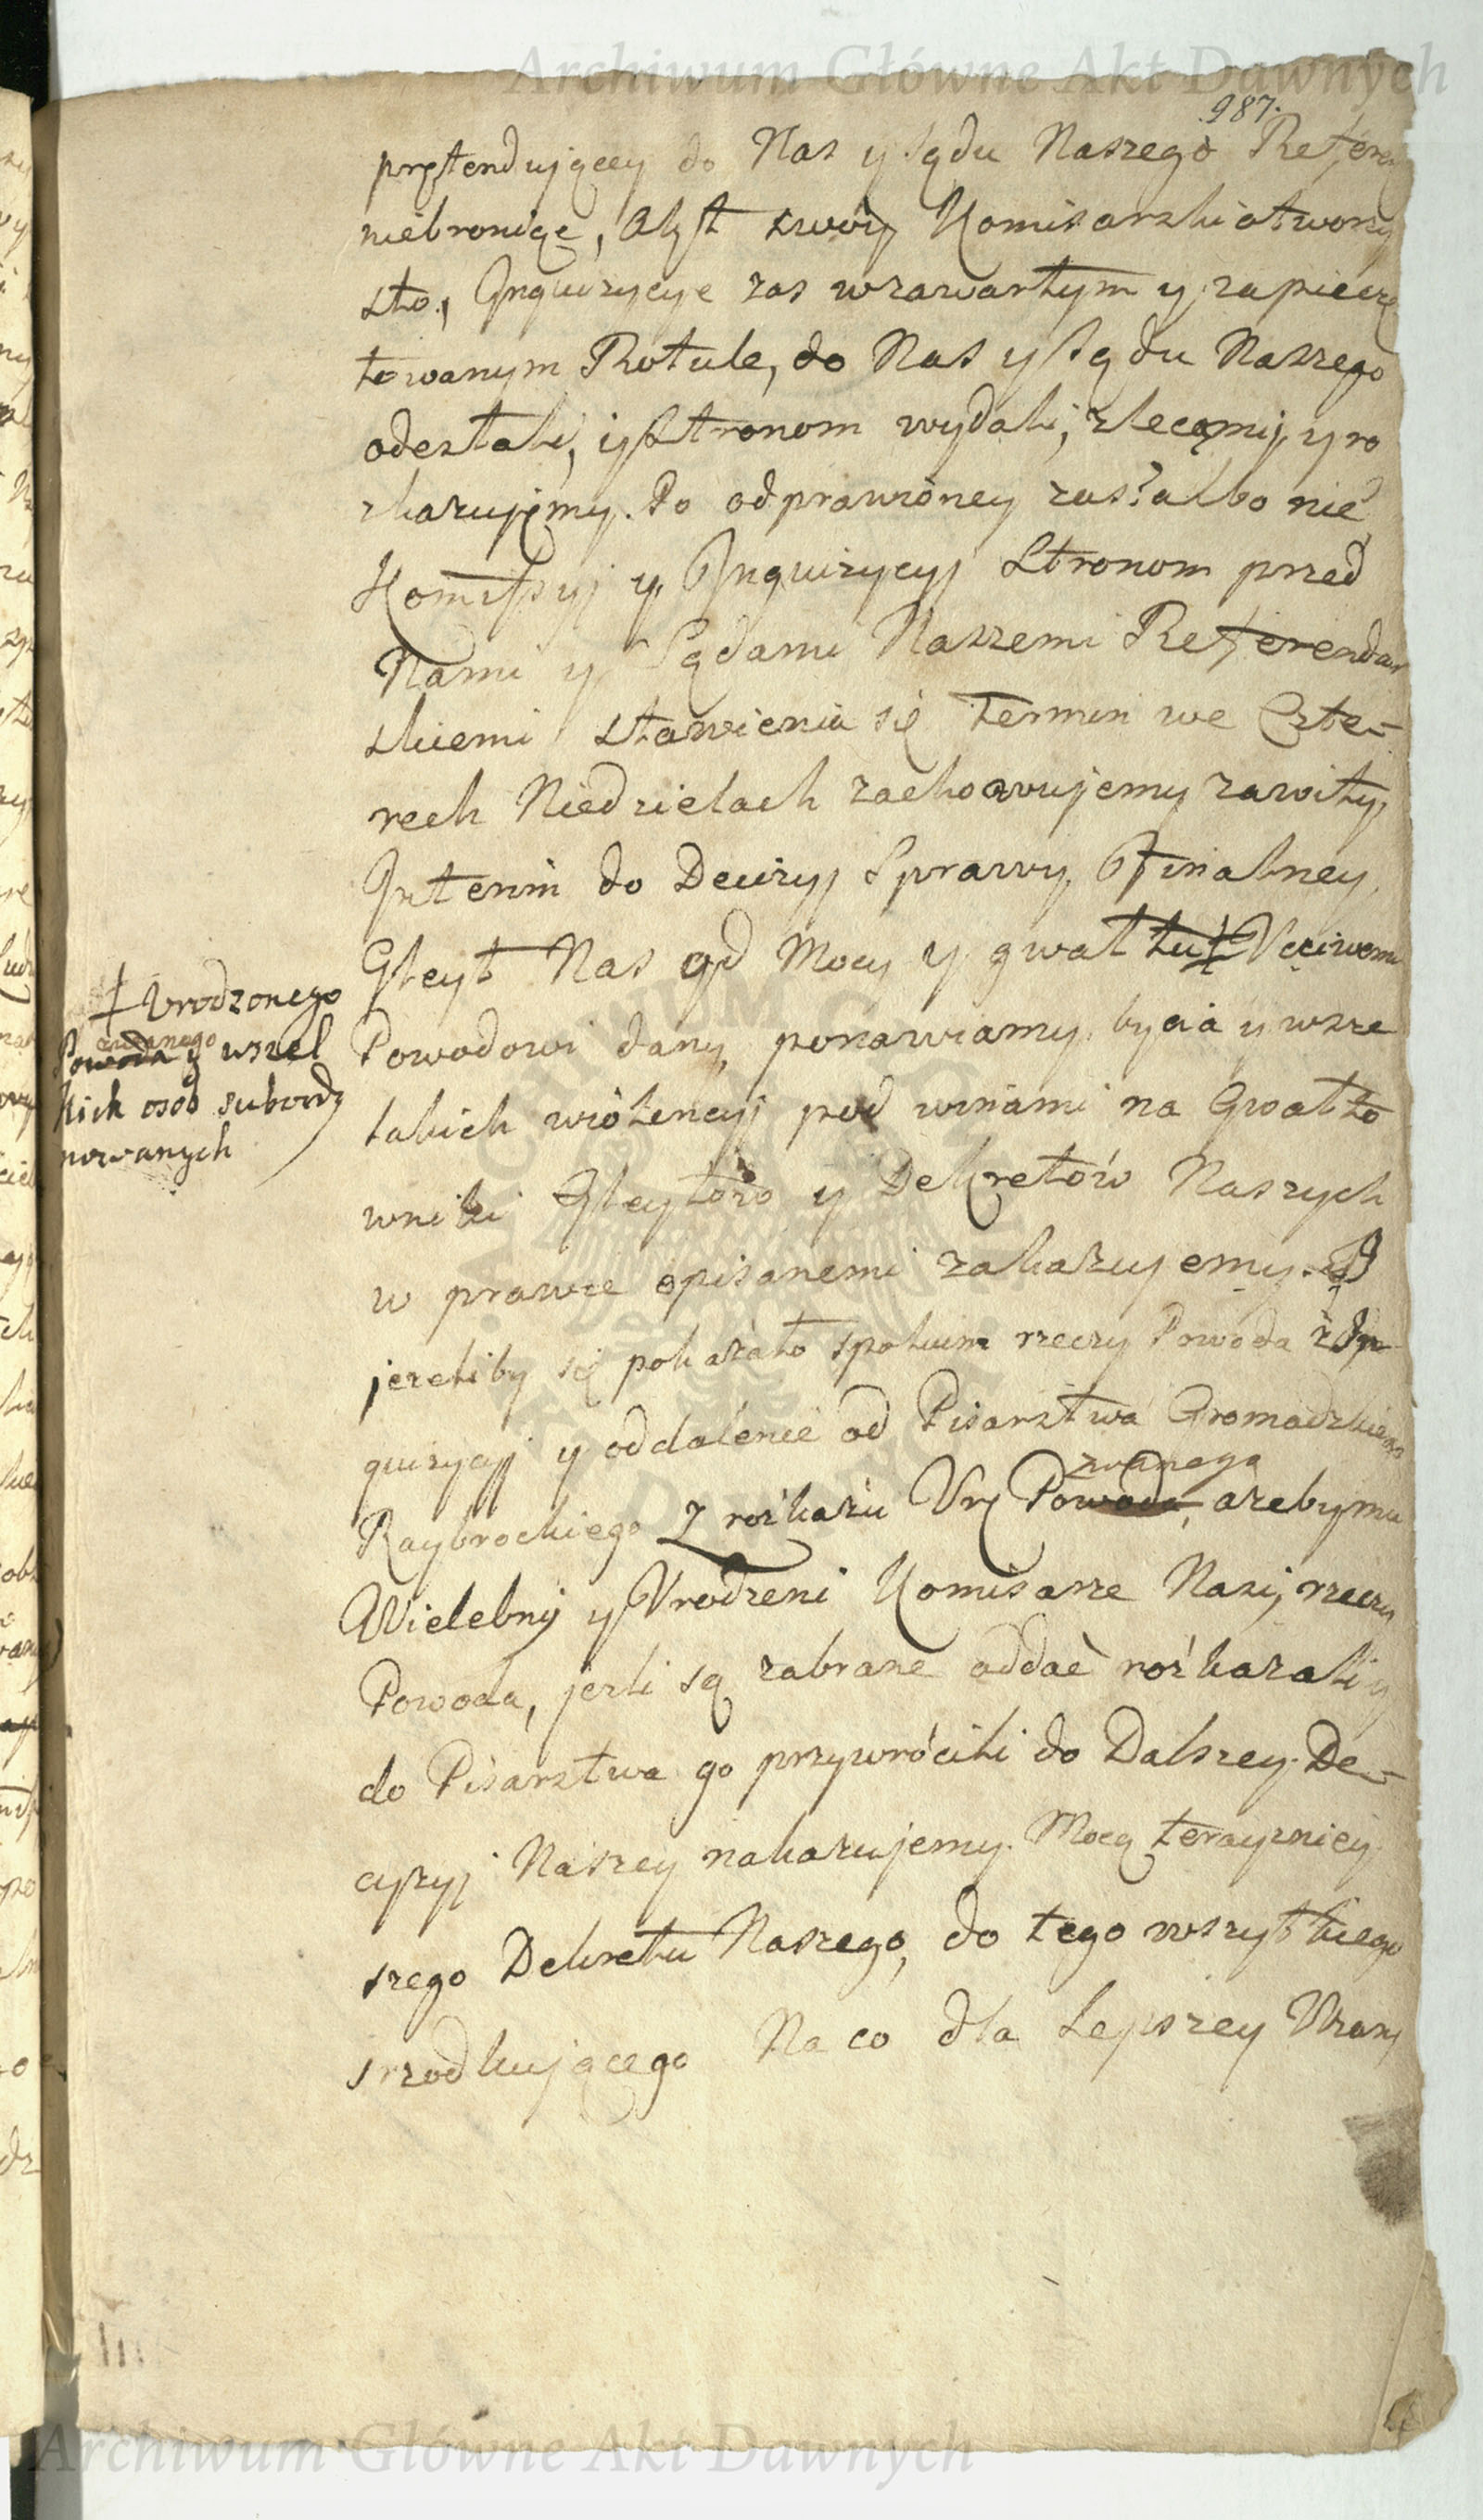 Archiwum Główne Akt Dawnych
987.
prętendującey do Nas y Sądu Naszego Referen
niebroniąc, Akt swóy Komisarski otworzy
sto, Inquizycye zas wzawartym y zapieczę
towanym Rotule, do Nas y Sądu Naszego
odesłali, y Stronom wydali, zlecamy, y ro
skazujęmy. Po odprawioney zas? albo nie
Komissyi y Inquizycyi Stronom przed
Nami y Sądami Naszemi Referendar
skiemi stawienia się termin we Czte-
rech Niedzielach zachowujemy zawity,
Interim do Decizyi Sprawy Finalney,
Gleyt Nas od Mocy y gwałtu ‡ Vcciwemu
Powodowi dany, ponawiamy, bycia y wsze
lakich wiolencyi pod winami na Gwałto
wniki Gleytow y Dekretów Naszych
w prawie opisanemi zakazujemy. A
jezeliby się pokazało spokuna rzeczy Powoda z In
quizycyi y oddalenie od Pisarztwa Gromadzkiego
zwanego
Raybrockiego z rozkazu Vrę Powoda, azeby mu
Wielebny y Vrodzeni Komisarze Nasi, rzeczy
Powoda, jezli są zabrane oddać rozkazali y
do Pisarztwa go przywrócili do Dalszey De-
cyzyi Naszey nakazujemy. Mocą terayzniey
szego Dekretu Naszego, do tego wszytkiego
srzodkującego Na co dla Lepszey Wiary
‡ Vrodzonego
zwanego
Powoda y wszel
kich osób subordy
nowanych
Archiwum Główne Akt Dawnych